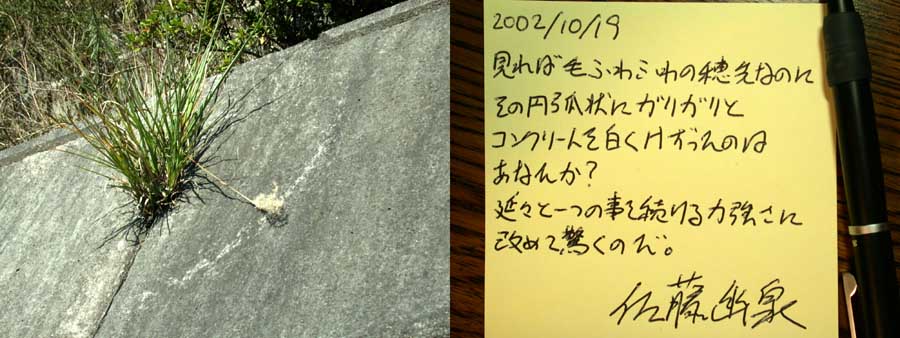 2002/10/19
見れば毛ふわふわの穂先なのに
その円弧状にガリガリと
コンクリートを白くけずったのは
あなんか?
延々と一つの事を続ける力強さに
改めて驚くのだ。
佐藤幽泉